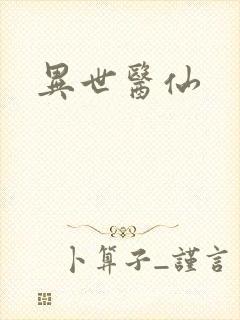 異世醫仙
卜算子_謹言